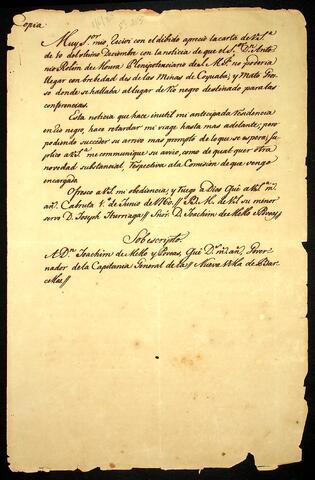 Copia
Muy S.or mio. Recivi con el dibido aprecio la carta de V.S.a
de 10 del ultimo Deciembre con la noticia de que el S.r D.n Anto
nio Rolim de Moura Plenipotenciario de S. M. F. no poderia
llegar con brebedad des de las Minas de Cuyabá, y Mato Gros
so donde se hallaba al lugar de Rio negro destinado para las
conferencias.
Esta noticia que hace inutil mi antecipada residencia
en Rio negro, hace retardar mi viage hasta mas adelante; pero
pudiendo succeder su arrivo mas prompto de lo que se aspera, Su
plico a V.S.a me communique su aviso, como de qual quer otra
novedad substancial, respectiva a la Comision de que vengo
encargado.
Ofresco a V.S. mi obediencia; y ruego a Dios Gue a V.S. m.s
an.s Cabruta 1.o de Junio de 1760 // B. L. M. de V.S. su menor
servo D. Joseph Iturriaga // Snör. D. Joachim de Mello Povoas //
Sobescripto
A D.n Joachim de Mello y Povoas, Gue D.s m.s an.s Gover
nador de la Capitania General de la // Nueva Villa de Bar
cellos //